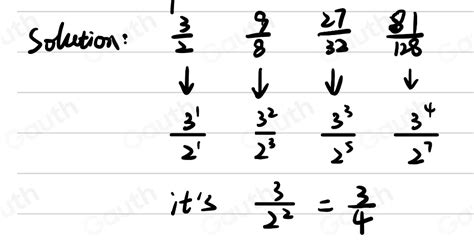 Solution: 3/2 9/8 27/32 81/128
↓ ↓ ↓ ↓
3¹/2¹ 3²/2³ 3³/2⁵ 3⁴/2⁷
it's 3/2² = 3/4